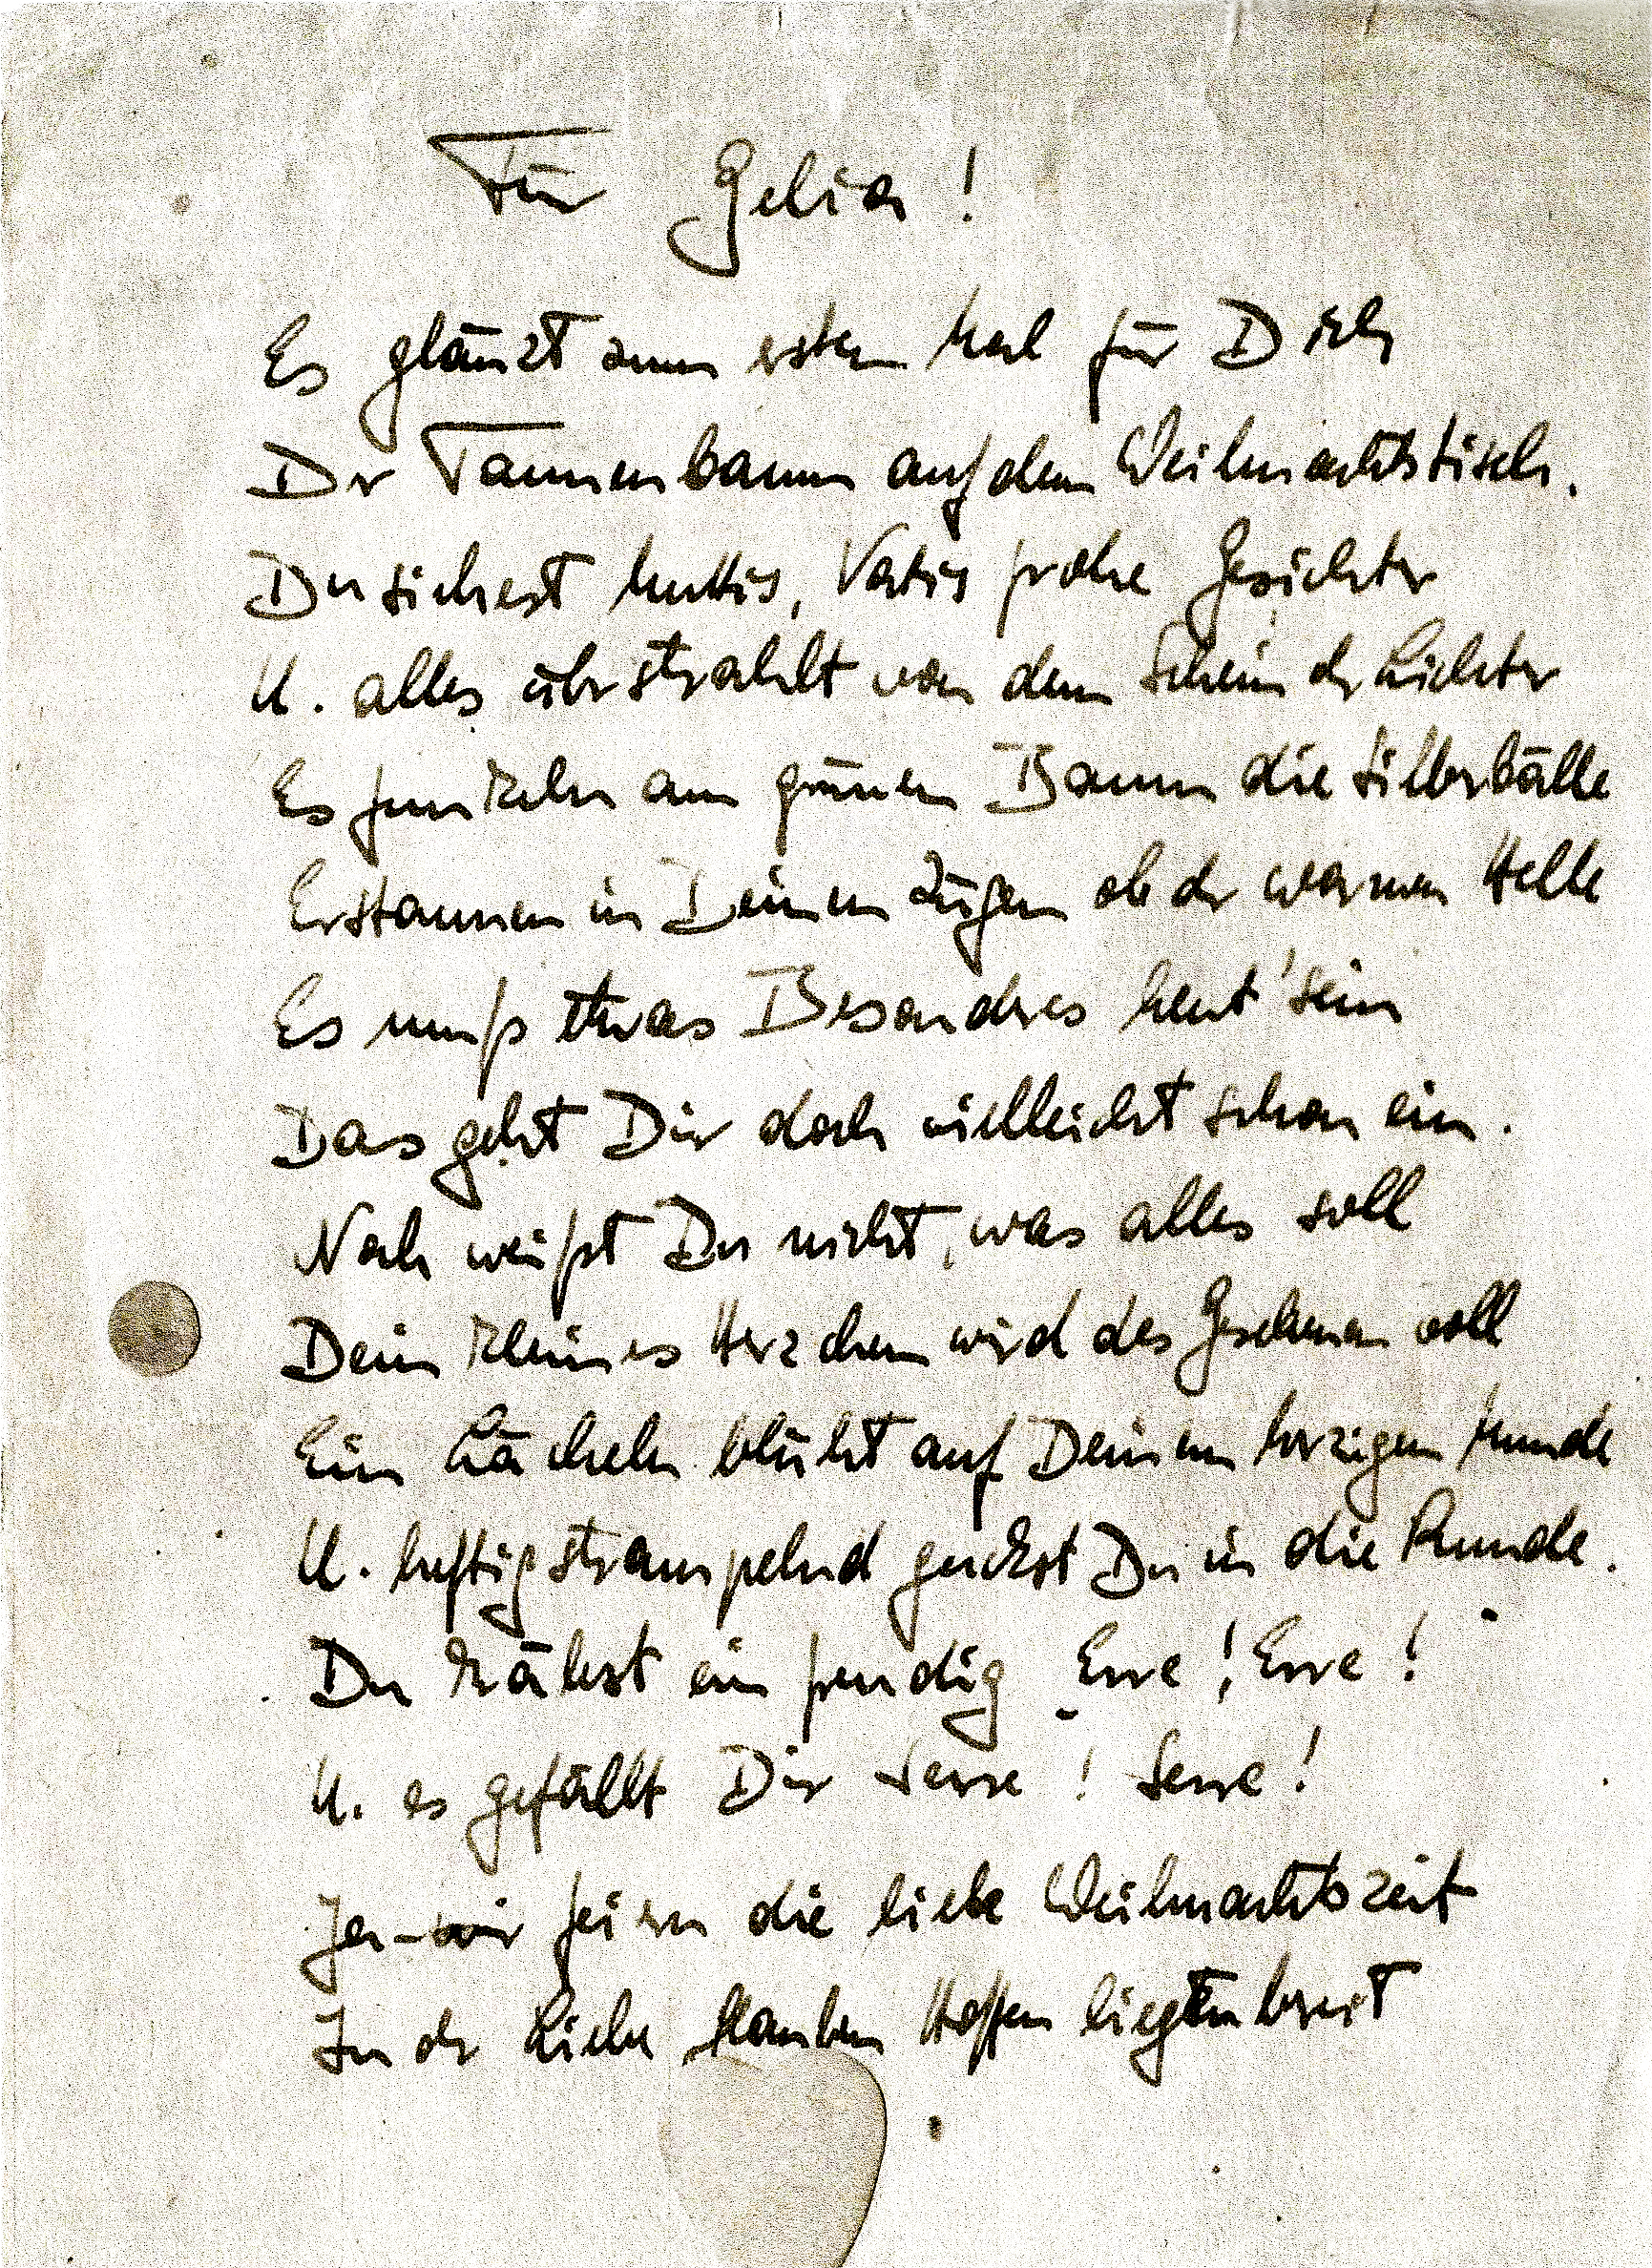 Für Gelia!
Es glänzt zum ersten Mal für Dich
Der Tannenbaum auf dem Weihnachtstisch.
Du siehest Muttis, Vatis frohe Gesichter
U. alles überstrahlt von dem Schein der Lichter
Es funkeln am grünen Baum die Silberbälle
Erstaunen in Deinen Zügen ob der warmen Helle
Es muß etwas Besondres heut' sein
Das geht Dir doch vielleicht schon ein.
Noch weißt Du nicht, was alles soll
Dein kleines Herzchen wird des Geschehen voll
Ein Lächeln blüht auf Deinem herzigen Munde
U. heftig strampelnd guckst Du in die Runde.
Du krähst ein freudig „Erre! Erre!"
U. es gefällt Dir Serre! Serre!
Ja - wir feiern die liebe Weihnachtszeit
In der Liebe Glauben Hoffen liegt